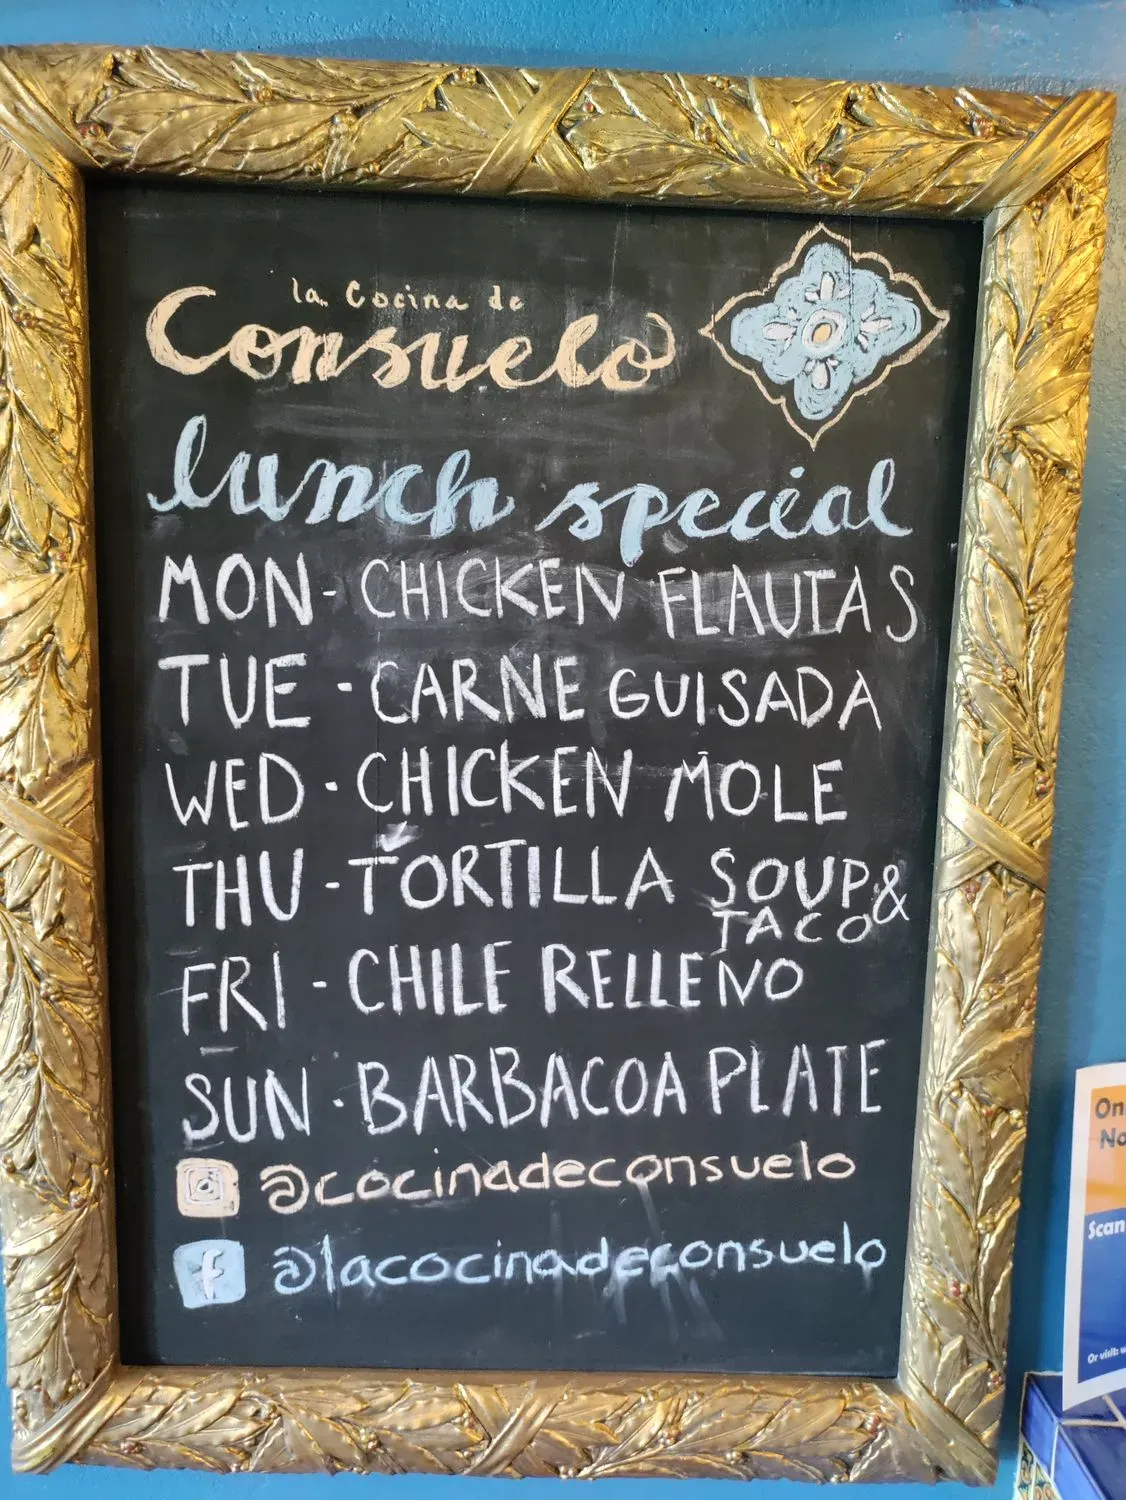 la Cocina de
Consuelo
lunch special
MON - CHICKEN FLAUTAS
TUE - CARNE GUISADA
WED - CHICKEN MOLE
THU - TORTILLA SOUP &
TACO
FRI - CHILE RELLENO
SUN - BARBACOA PLATE
@cocinadeconsuelo
f @lacocinadeconsuelo
On
No
Scan
Or visit: w